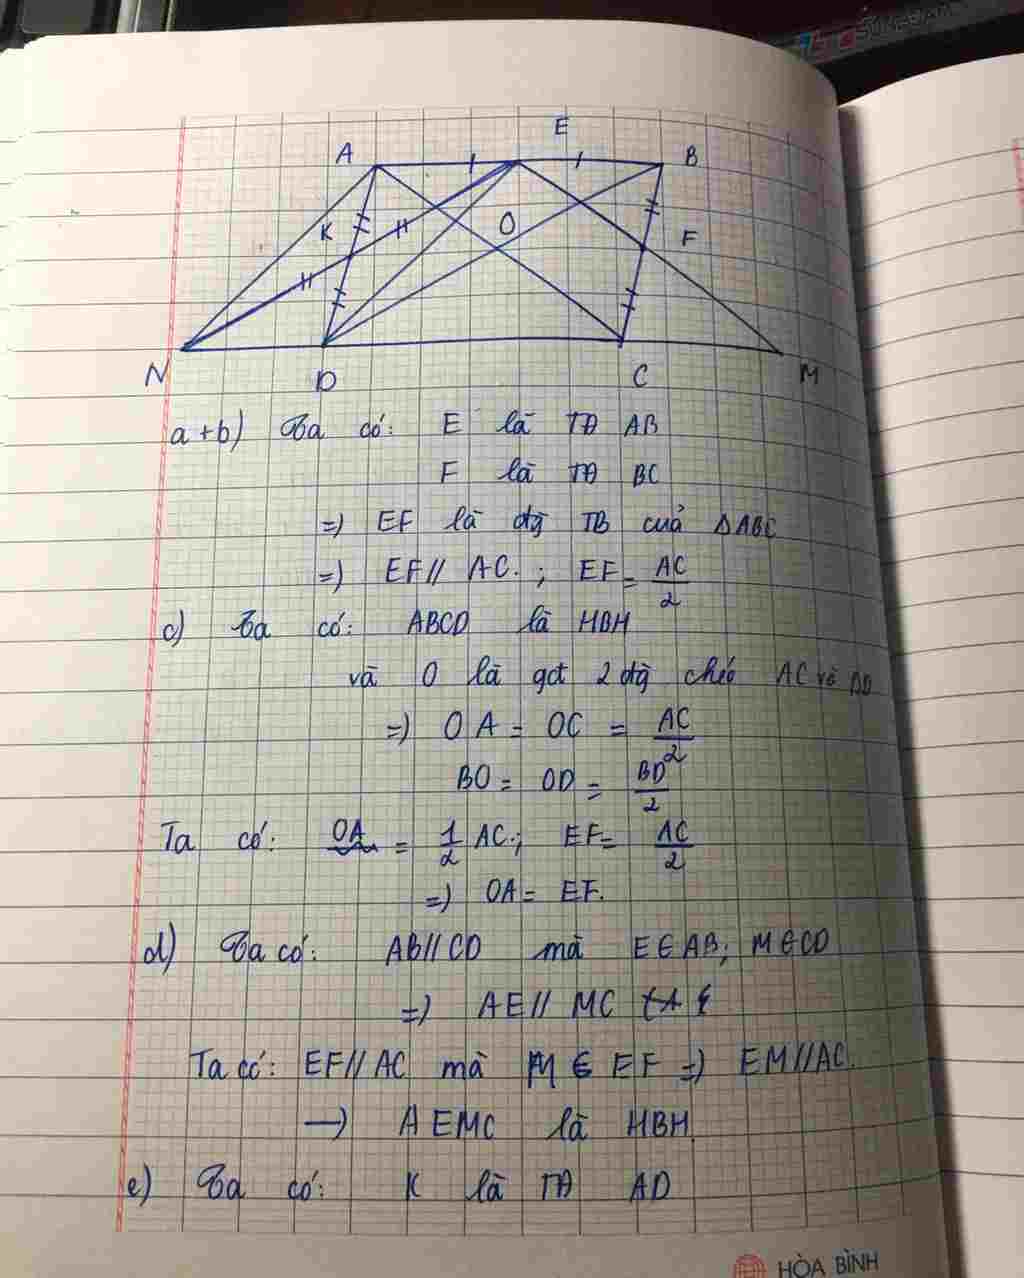 E
A
B
K
O
F
N
D
C
M
a+b) Ta có: E là TĐ AB
F là TĐ BC
=) EF là đg TB cuả ΔABC
=) EF // AC. ; EF = AC/2
c) Ta có: ABCD là HBH
và O là gđ 2 đg chéo AC và BD
=) OA = OC = AC/2
BO = OD = BD/2
Ta có: OA = 1/2 AC ; EF = AC/2
=) OA = EF.
d) Ta có: AB // CD mà E ∈ AB; M ∈ CD
=) AE // MC
Ta có: EF // AC mà M ∈ EF =) EM // AC.
—) AEMC là HBH
e) Ta có: K là TĐ AD
HÒA BÌNH